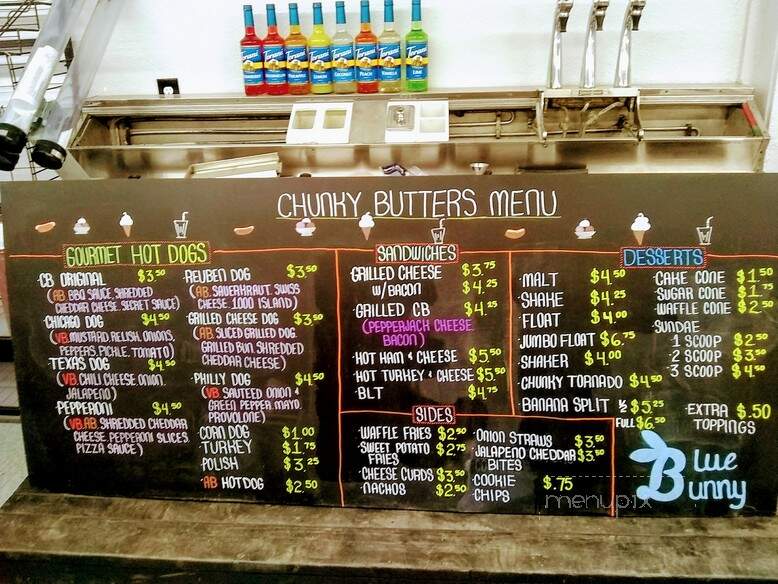 Torani
Torani
Torani
Torani
LEMON
Torani
COCONUT
Torani
PEACH
Torani
VANILLA
Torani
LIME
CHUNKY BUTTERS MENU
GOURMET HOT DOGS
CB ORIGINAL $3.50
(AB BBQ SAUCE, SHREDDED
CHEDDAR CHEESE, SECRET SAUCE)
CHICAGO DOG $4.50
(VB MUSTARD, RELISH, ONIONS,
PEPPERS, PICKLE, TOMATO)
TEXAS DOG $4.50
(VB, CHILI CHEESE, ONION,
JALAPENO)
PEPPERONI $4.50
(VB, AB, SHREDDED CHEDDAR
CHEESE, PEPPERONI SLICES,
PIZZA SAUCE)
REUBEN DOG $3.50
(AB, SAUERKRAUT, SWISS
CHEESE, 1000 ISLAND)
GRILLED CHEESE DOG $3.50
(AB, SLICED GRILLED DOG,
GRILLED BUN, SHREDDED
CHEDDAR CHEESE)
PHILLY DOG $4.50
(VB, SAUTEED ONION &
GREEN PEPPER, MAYO,
PROVOLONE)
CORN DOG $1.00
TURKEY $1.75
POLISH $3.25
AB HOTDOG $2.50
SANDWICHES
GRILLED CHEESE $3.75
W/BACON $4.25
GRILLED CB $4.25
(PEPPERJACK CHEESE,
BACON)
HOT HAM & CHEESE $5.50
HOT TURKEY & CHEESE $5.50
BLT $4.75
SIDES
WAFFLE FRIES $2.50
SWEET POTATO $2.75
FRIES
CHEESE CURDS $3.50
NACHOS $2.50
ONION STRAWS $3.50
JALAPENO CHEDDAR $3.50
BITES
COOKIE $.75
CHIPS
DESSERTS
MALT $4.50
SHAKE $4.25
FLOAT $4.00
JUMBO FLOAT $6.75
SHAKER $4.00
CHUNKY TORNADO $4.50
BANANA SPLIT ½ $5.25
FULL $6.50
CAKE CONE $1.50
SUGAR CONE $1.75
WAFFLE CONE $2.50
SUNDAE
1 SCOOP $2.50
2 SCOOP $3.50
3 SCOOP $4.50
EXTRA $.50
TOPPINGS
Blue
Bunny
menupix